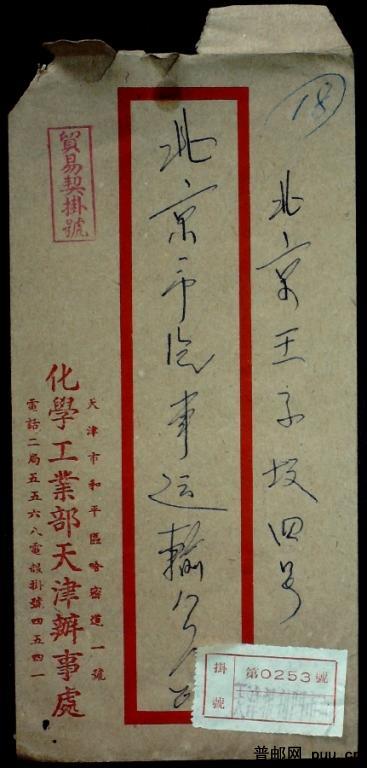 18
北京王字坟四号
北京市汽车运输公司
貿易契掛號
天津市和平區哈密道一號
化學工業部天津辦事處
電話二局五五六八電報掛號四五四一
掛號
第0253號
普邮网 puu.cn